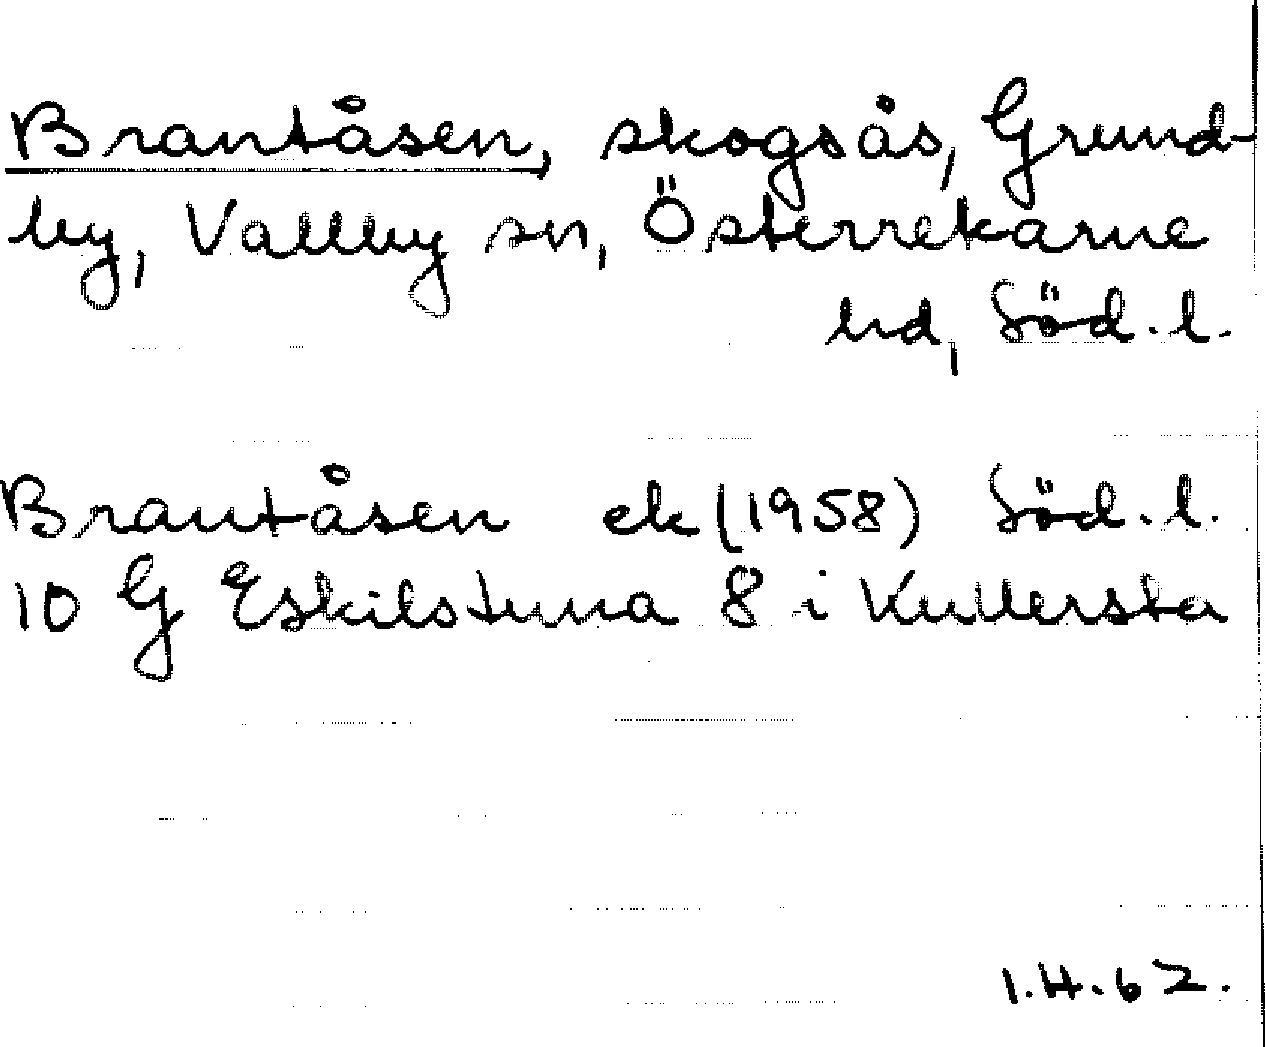 Brantåsen, skogsås, Grund-
by, Vallby sn, Österrekarne
hd, Söd. l.
Brantåsen ek (1958) Söd. l.
10 G Eskilstuna 8 i Kullersta
I.H. 62.